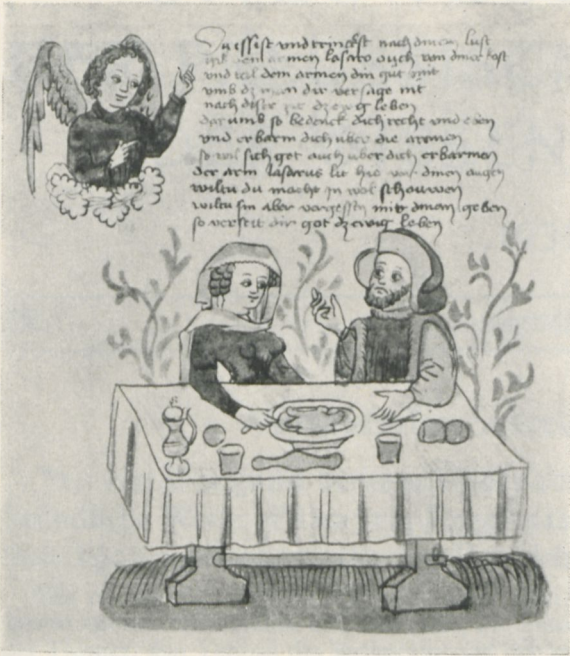 Du issist und trinckst nach dinem lust
armen lasaro ouch von diner kost
und teil dem armen din gut mit
umb dz dir versage nit
nach diser dz ewig leben
dar umb so bedenck dich recht und eben
und erbarm dich uber die armen
so wil sich got auch uber dich erbarmen
der arm lasarus lit hie vor dinen augen
wiltu du macht in wol schouwen
wiltu sin aber vergessen mitt dinem geben
so verseit dir got dz ewig leben